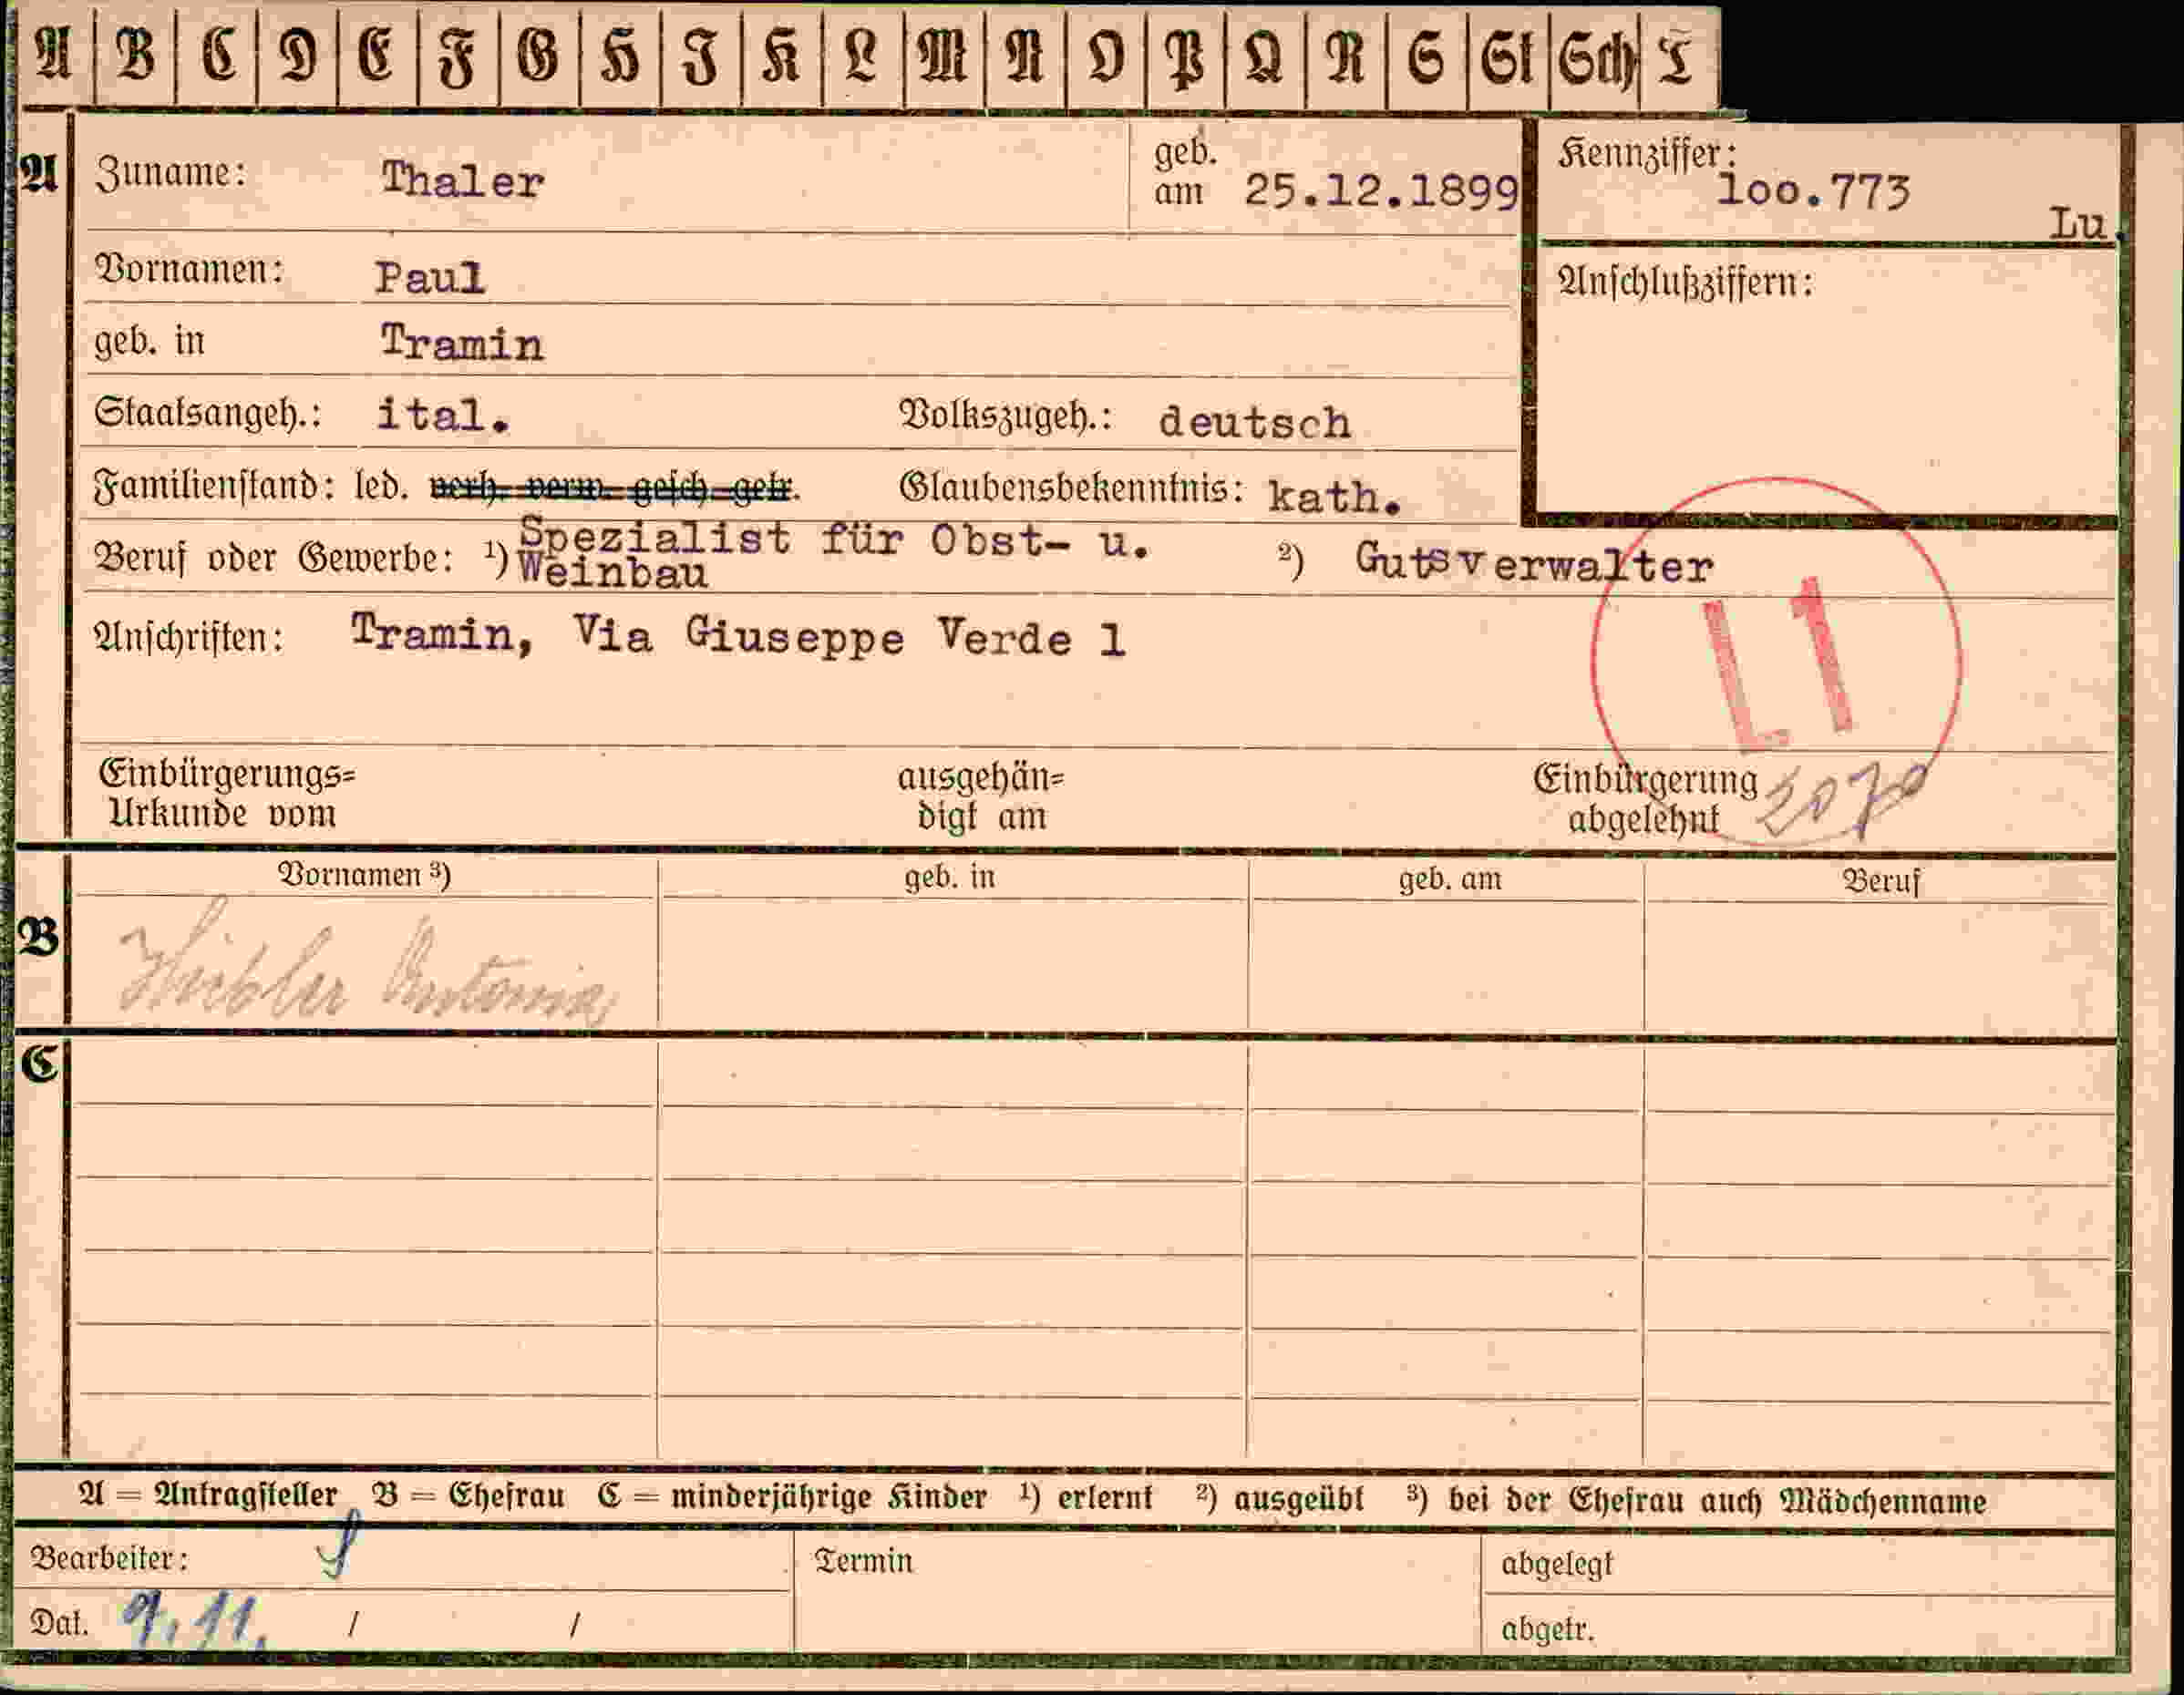 A B C D E F G H I K L M N O P Q R S St Sch T
A Zuname: Thaler geb. am 25.12.1899
Kennziffer: 1oo.773 Lu.
Vornamen: Paul
Anschlußziffern:
geb. in Tramin
Staatsangeh.: ital. Volkszugeh.: deutsch
Familienstand: led. verh. verw. gesch. getr. Glaubensbekenntnis: kath.
Beruf oder Gewerbe: ¹) Spezialist für Obst- u. Weinbau ²) Gutsverwalter
Anschriften: Tramin, Via Giuseppe Verde 1
L1
Einbürgerungs= Urkunde vom ausgehän= digt am Einbürgerung abgelehnt
Vornamen ³) geb. in geb. am Beruf
B Antonia
C
A = Antragsteller B = Ehefrau C = minderjährige Kinder ¹) erlernt ²) ausgeübt ³) bei der Ehefrau auch Mädchenname
Bearbeiter: Termin abgelegt
Dat. 9.11. / / abgetr.